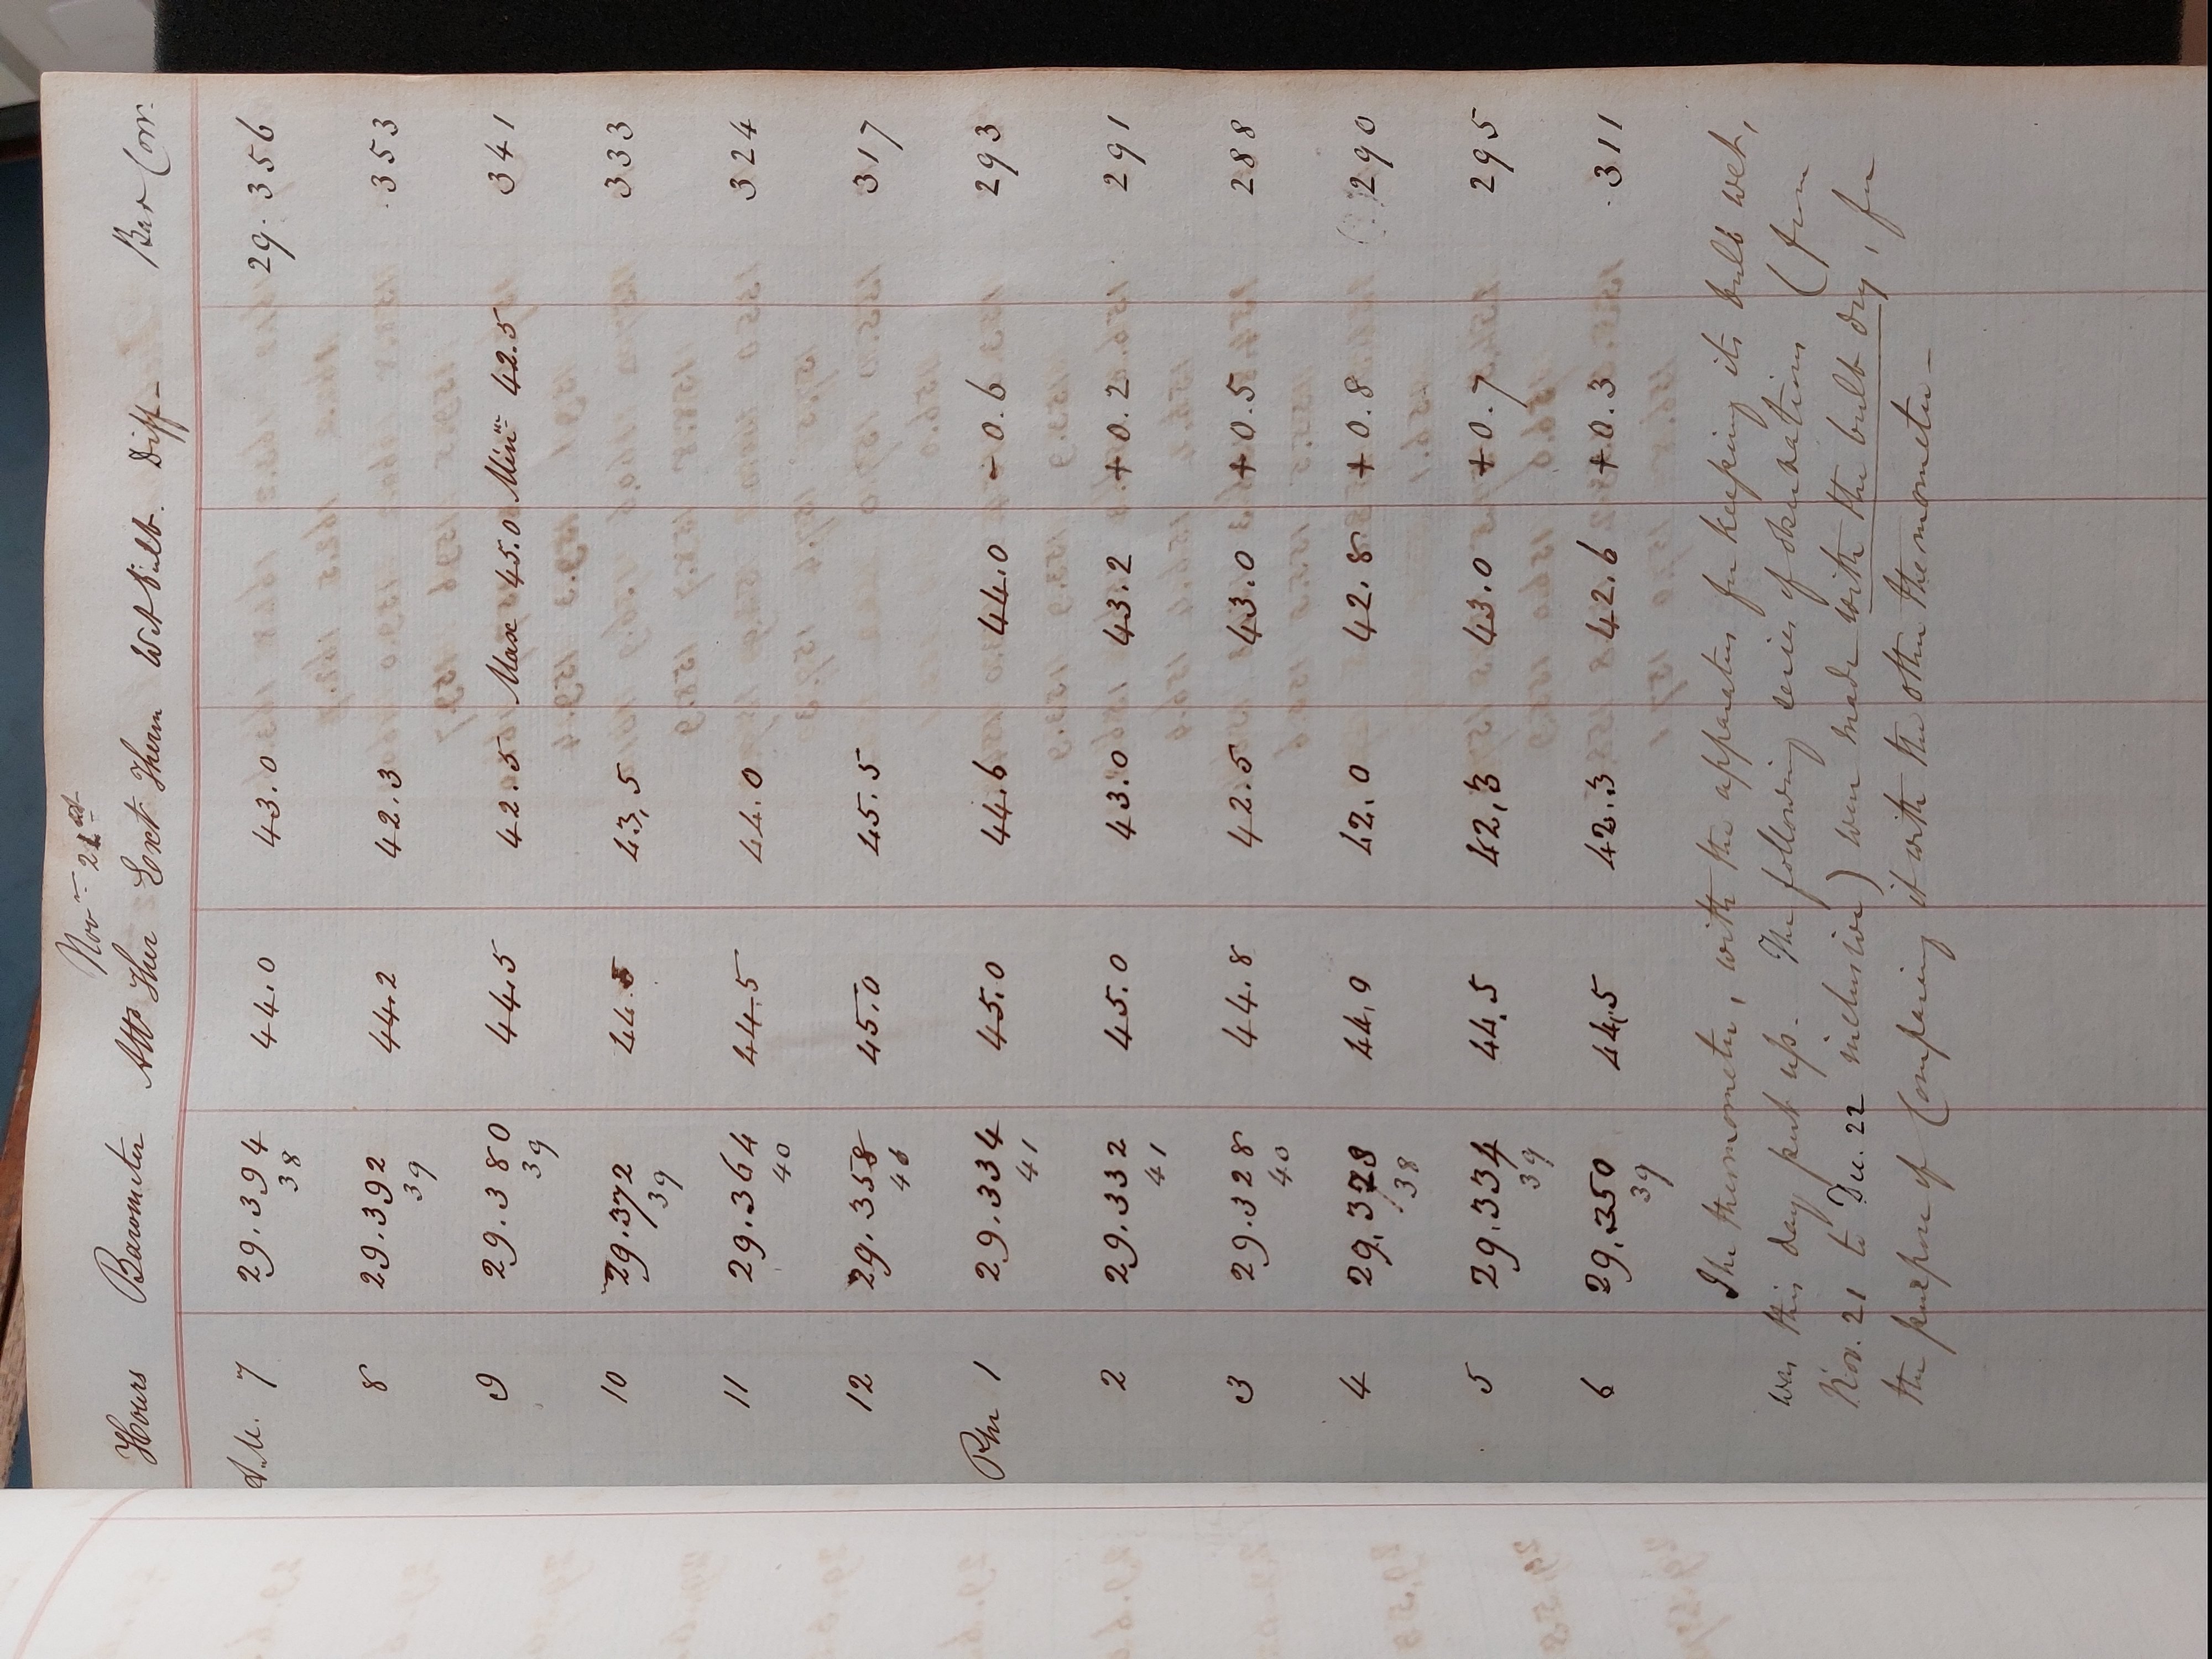 Novr 21st
Hours Barometer Attd Ther Ext Therm Wet bulb. Diff- Bar Corr.
A.M. 7 29.394 44.0 43.0 29.356
38
8 29.392 44.2 42.3 .353
39
9 29.380 44.5 42.5 Max 45.0 Minm 42.5 341
39
10 29.372 44.5 43,5 333
39
11 29.364 44.5 44.0 324
40
12 29.358 45.0 45.5 317
Pm 1 29.334 45.0 44.6 44.0 - 0.6 293
41
2 29.332 45.0 43.0 43.2 + 0.2 291
41
3 29.328 44.8 42.5 43.0 + 0.5 288
40
4 44,0 42.0 42.8 + 0.8 (?) 290
38
5 29,334 44,5 42,3 43.0 + 0.7 295
39
6 29,350 44,5 42.3 42.6 + 0.3 .311
39
The thermometer, with the apparatus for keeping its bulb wet,
was this day put up. The following series of observations (from
Nov. 21 to Dec. 22 inclusive) were made with the bulb dry, for
the purpose of Comparing it with the other thermometer -